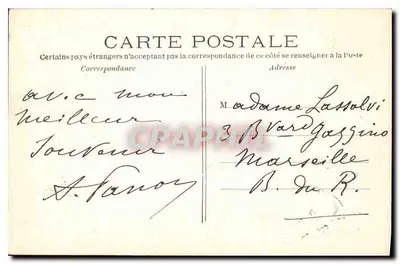 CARTE POSTALE
Certains pays étrangers n'acceptant pas la correspondance de ce côté se renseigner à la Poste
Correspondance
Adresse
avec mon
meilleur
Souvenir
Madame
3 Bvard
Marseille
B. du R.
CPARAMA